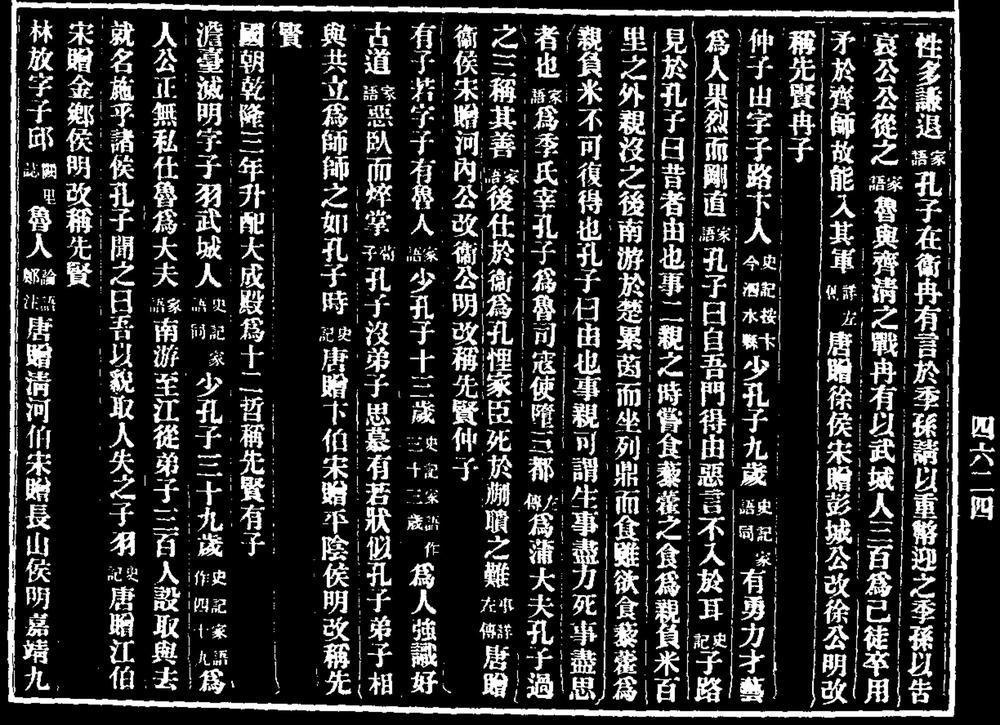 性多謙退家語孔子在衛冉有言於季孫請以重幣迎之季孫以告
哀公公從之家語魯與齊清之戰冉有以武城人三百爲己徒卒用
矛於齊師故能入其軍詳左傳唐贈徐侯宋贈彭城公改徐公明改
稱先賢冉子
仲子由字子路卞人史記按卞今泗水縣少孔子九歲史記家語同有勇力才藝
爲人果烈而剛直家語孔子曰自吾門得由惡言不入於耳史記子路
見於孔子曰昔者由也事二親之時嘗食藜藿之食爲親負米百
里之外親沒之後南游於楚累茵而坐列鼎而食雖欲食藜藿爲
親負米不可復得也孔子曰由也事親可謂生事盡力死事盡思
者也家語爲季氏宰孔子爲魯司寇使墮三都左傳爲蒲大夫孔子過
之三稱其善家語後仕於衞爲孔悝家臣死於蒯聵之難事詳左傳唐贈
衞侯宋贈河內公改衞公明改稱先賢仲子
有子若字子有魯人家語少孔子十三歲史記家語作三十三歲爲人強識好
古道家語惡臥而焠掌荀子孔子沒弟子思慕有若狀似孔子弟子相
與共立爲師師之如孔子時史記唐贈卞伯宋贈平陰侯明改稱先
賢
國朝乾隆三年升配大成殿爲十二哲稱先賢有子
澹臺滅明字子羽武城人史記家語同少孔子三十九歲史記家語作四十九爲
人公正無私仕魯爲大夫家語南游至江從弟子三百人設取與去
就名施乎諸侯孔子聞之曰吾以貌取人失之子羽史記唐贈江伯
宋贈金鄉侯明改稱先賢
林放字子邱闕里誌魯人論語鄭注唐贈清河伯宋贈長山侯明嘉靖九
四六二四